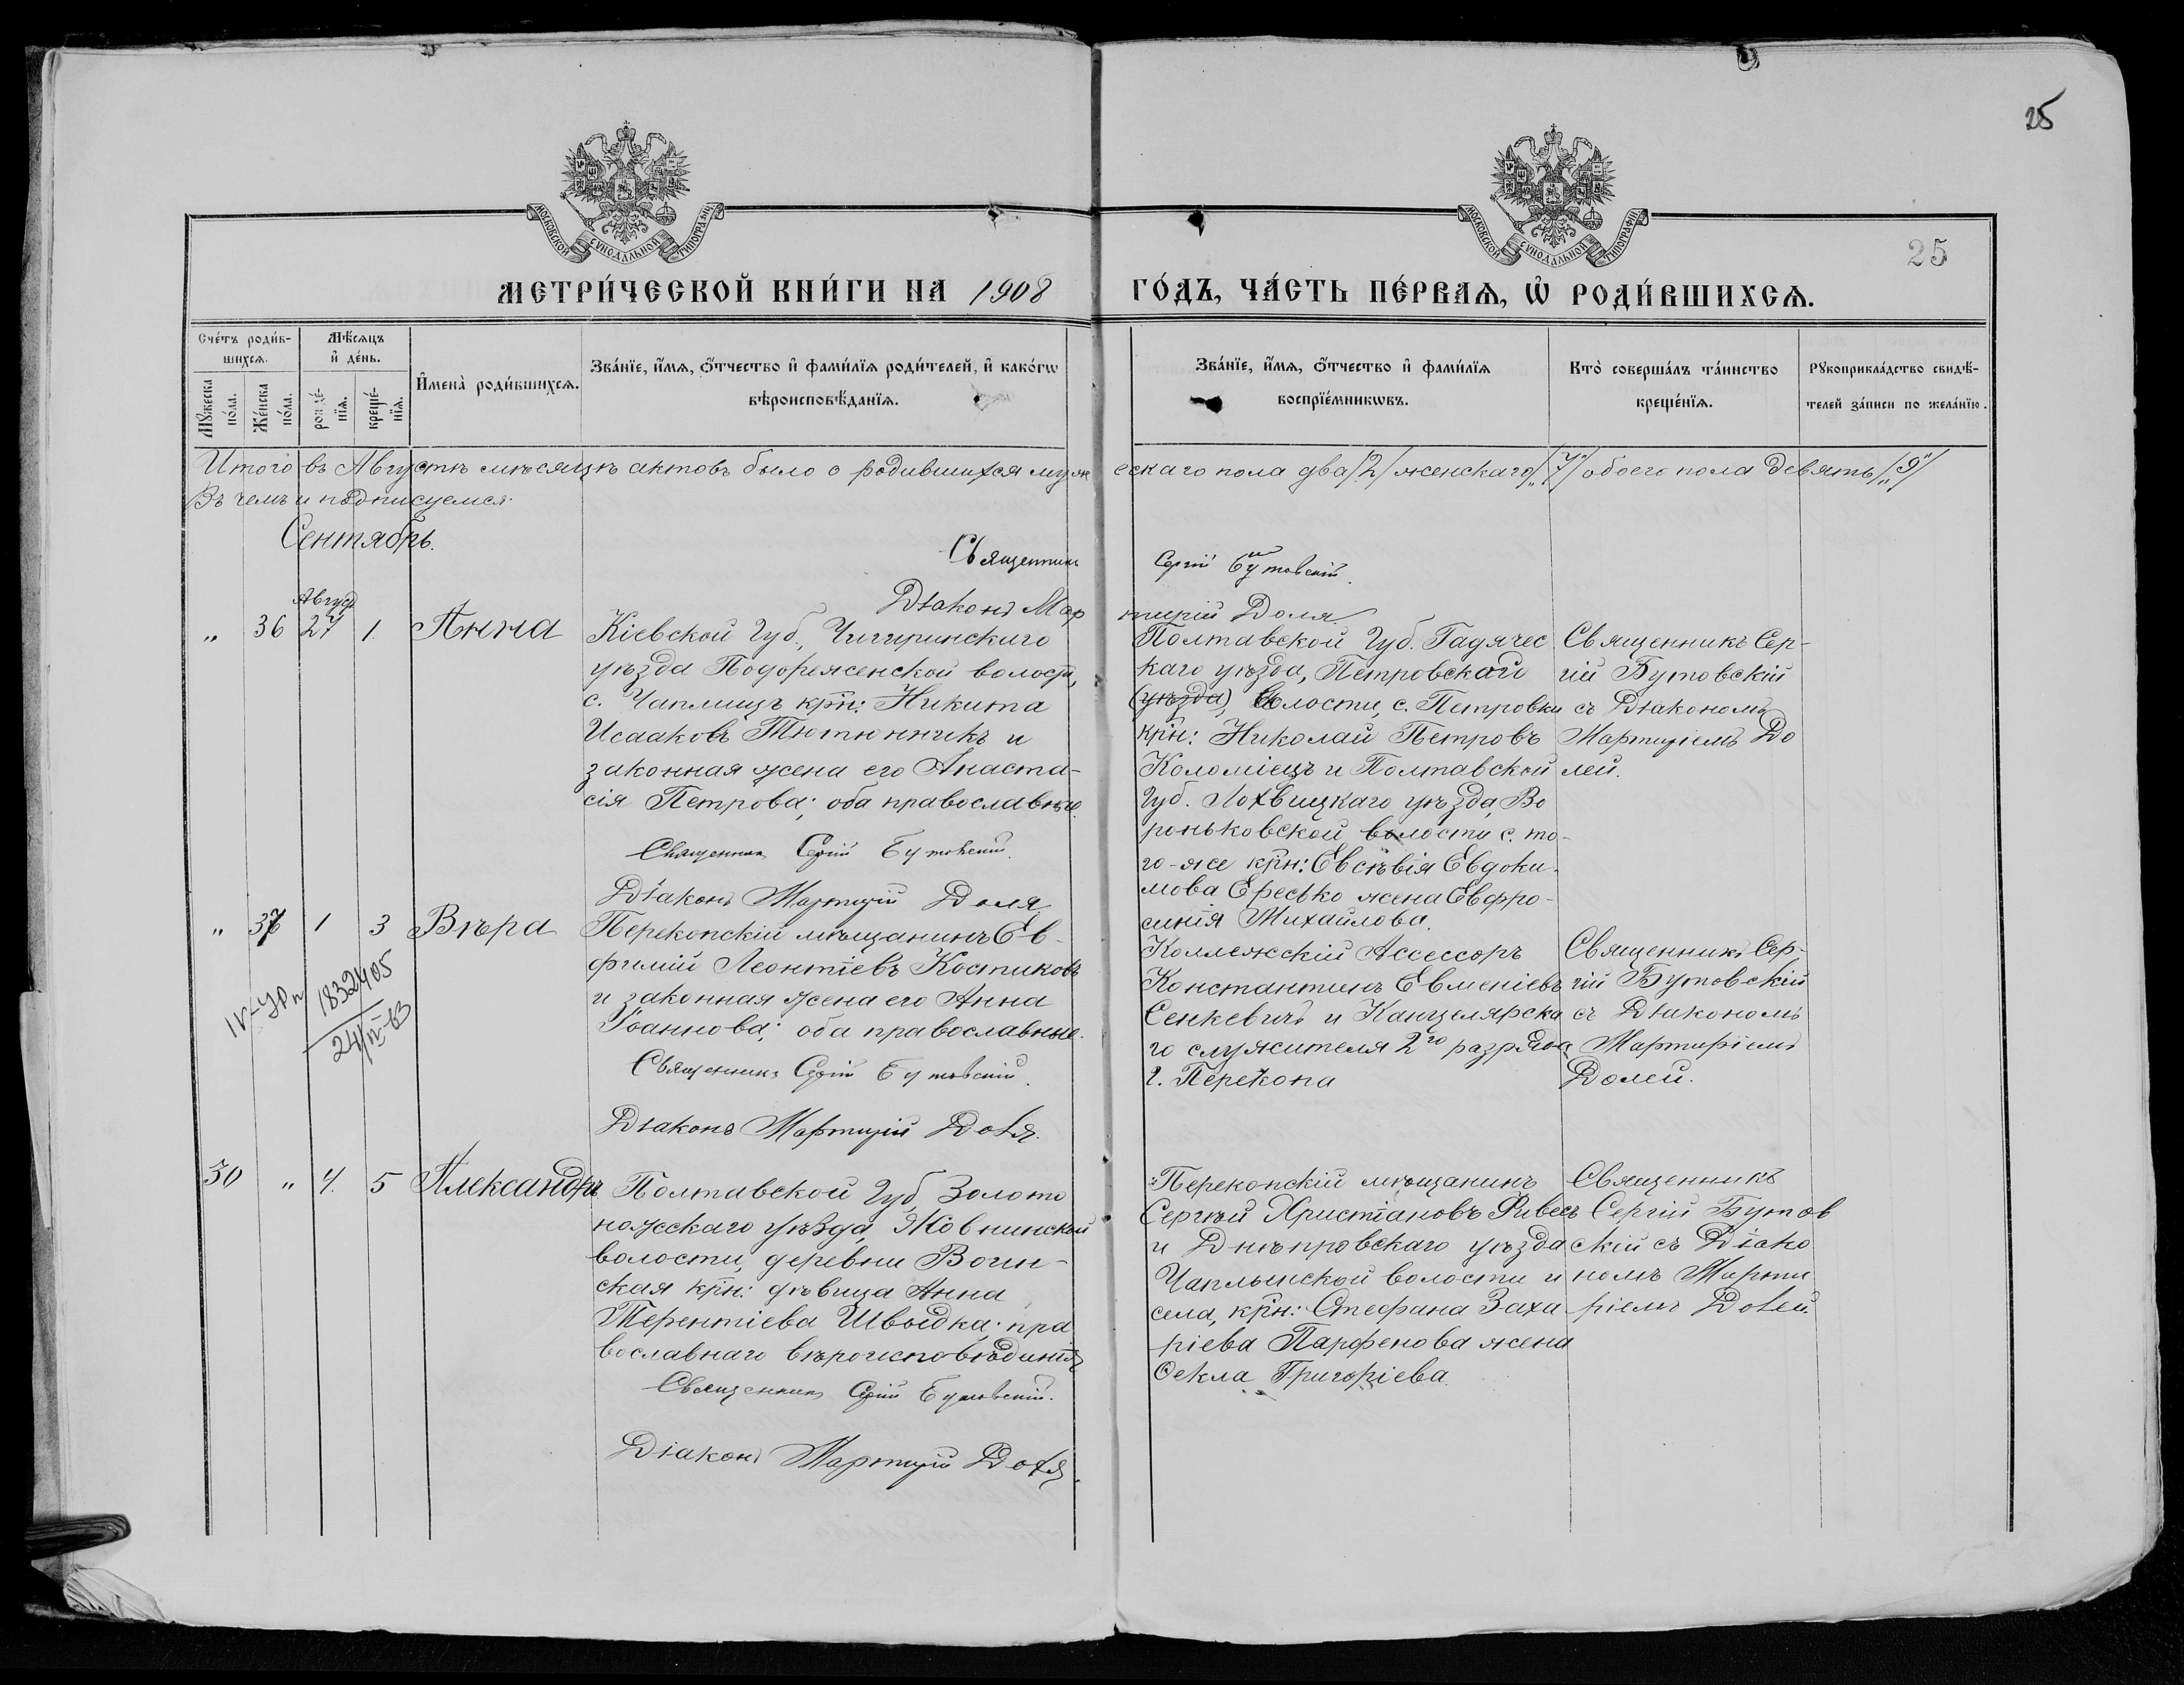 25
МОСКОВСКОЙ СѴНОДАЛЬНОЙ ТИПОГРАФІИ
МОСКОВСКОЙ СѴНОДАЛЬНОЙ ТИПОГРАФІИ
25
МЕТРИ́ЧЕСКОЙ КНИ́ГИ НА 1908 ГО́ДЪ, ЧА́СТЬ ПЕ́РВАѦ, Ѡ҆ РОДИ́ВШИХСѦ.
Сче́тъ роди́в-
шихсѧ.
Мѣ́сѧцъ
и҆ де́нь.
Мꙋ́жеска по́ла.
Же́нска по́ла.
рожде́-нїѧ.
креще́-нїѧ.
И҆мена̀ роди́вшихсѧ.
Зва́нїе, и҆́мѧ, ѻ҆́тчество и҆ фами́лїѧ роди́телей, и҆ како́гѡ
вѣроисповѣ́данїѧ.
Зва́нїе, и҆́мѧ, ѻ҆́тчество и҆ фами́лїѧ
воспрїе́мникѡвъ.
Кто̀ соверша́лъ та́инство
креще́нїѧ.
Рꙋкоприкла́дство свидѣ́-
телей за́писи по жела́нїю.
Итого въ Августѣ мѣсяцѣ актовъ было о родившихся мужескаго пола два /2/ женскаго /"7"/ обоего пола девять /"9"/
Въ чемъ и подписуемся:
Сентябрь.
Священникъ Сергій Бутовскій.
Діаконъ Мартирій Доля
Август
" 36 27 1. Анна
Кіевской Губ., Чигиринскаго
уѣзда Подороженской волости,
с. Чаплищъ крн: Никита
Исааковъ Тютюнникъ и
законная жена его Анаста-
сія Петрова; оба православные.
Священник Сергій Бутовскій.
Діаконъ Мартирій Доля
Полтавской Губ. Гадячес
каго уѣзда, Петровской
(уѣзда), волости, с. Петровки
крн: Николай Петровъ
Коломіецъ и Полтавской
Губ. Лохвицкаго уѣзда, Во
роньковской волости с. то-
го-же крн: Евсѣвія Евдоки-
мова Ересько жена Евфро-
синія Михайлова.
Священникъ Сер-
гій Бутовскій
съ Діакономъ
Мартиріемъ До
лей.
" 37 1 3 Вѣра
1832405
24/IX-63
Перекопскій мѣщанинъ Ев-
фимій Леонтіевъ Костиковъ
и законная жена его Анна
Іоаннова; оба православные.
Священникъ Сергій Бутовскій.
Діаконъ Мартирій Доля.
Коллежскій Ассессоръ
Константинъ Евменіевъ
Сенкевичъ и Канцелярска
го служителя 2го разряда
г. Перекопа
Священникъ Сер-
гій Бутовскій
съ Діакономъ
Мартиріемъ
Долей.
30 " 4. 5 Александръ
Полтавской Губ, Золото
ножскаго уѣзда, Жовнинской
волости, деревни Воин-
ская крн: дѣвица Анна
Терентіева Швыдка; пра
вославнаго вѣроисповѣданія
Священник Сергій Бутовскій.
Діаконъ Мартирій Доля.
Перекопскій мѣщанинъ
Сергѣй Христіановъ Ривесъ
и Днѣпровскаго уѣзда
Чаплынской волости и
села, крн: Стефана Заха
ріева Парфенова жена
Ѳекла Григоріева
Священникъ
Сергій Бутов
скій съ Діако
номъ Марти
ріемъ Долей